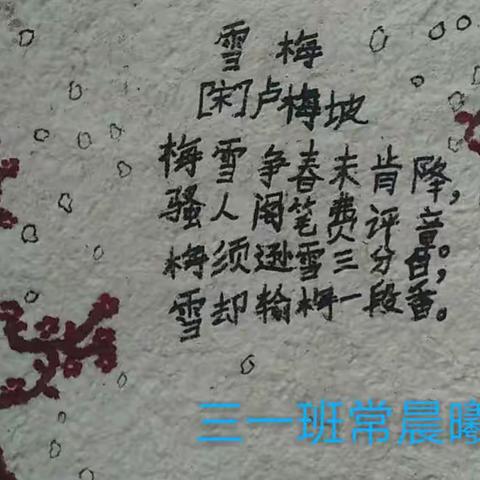 雪梅
[宋]卢梅坡
梅雪争春未肯降，
骚人阁笔费评章。
梅须逊雪三分白，
雪却输梅一段香。
三一班常晨曦